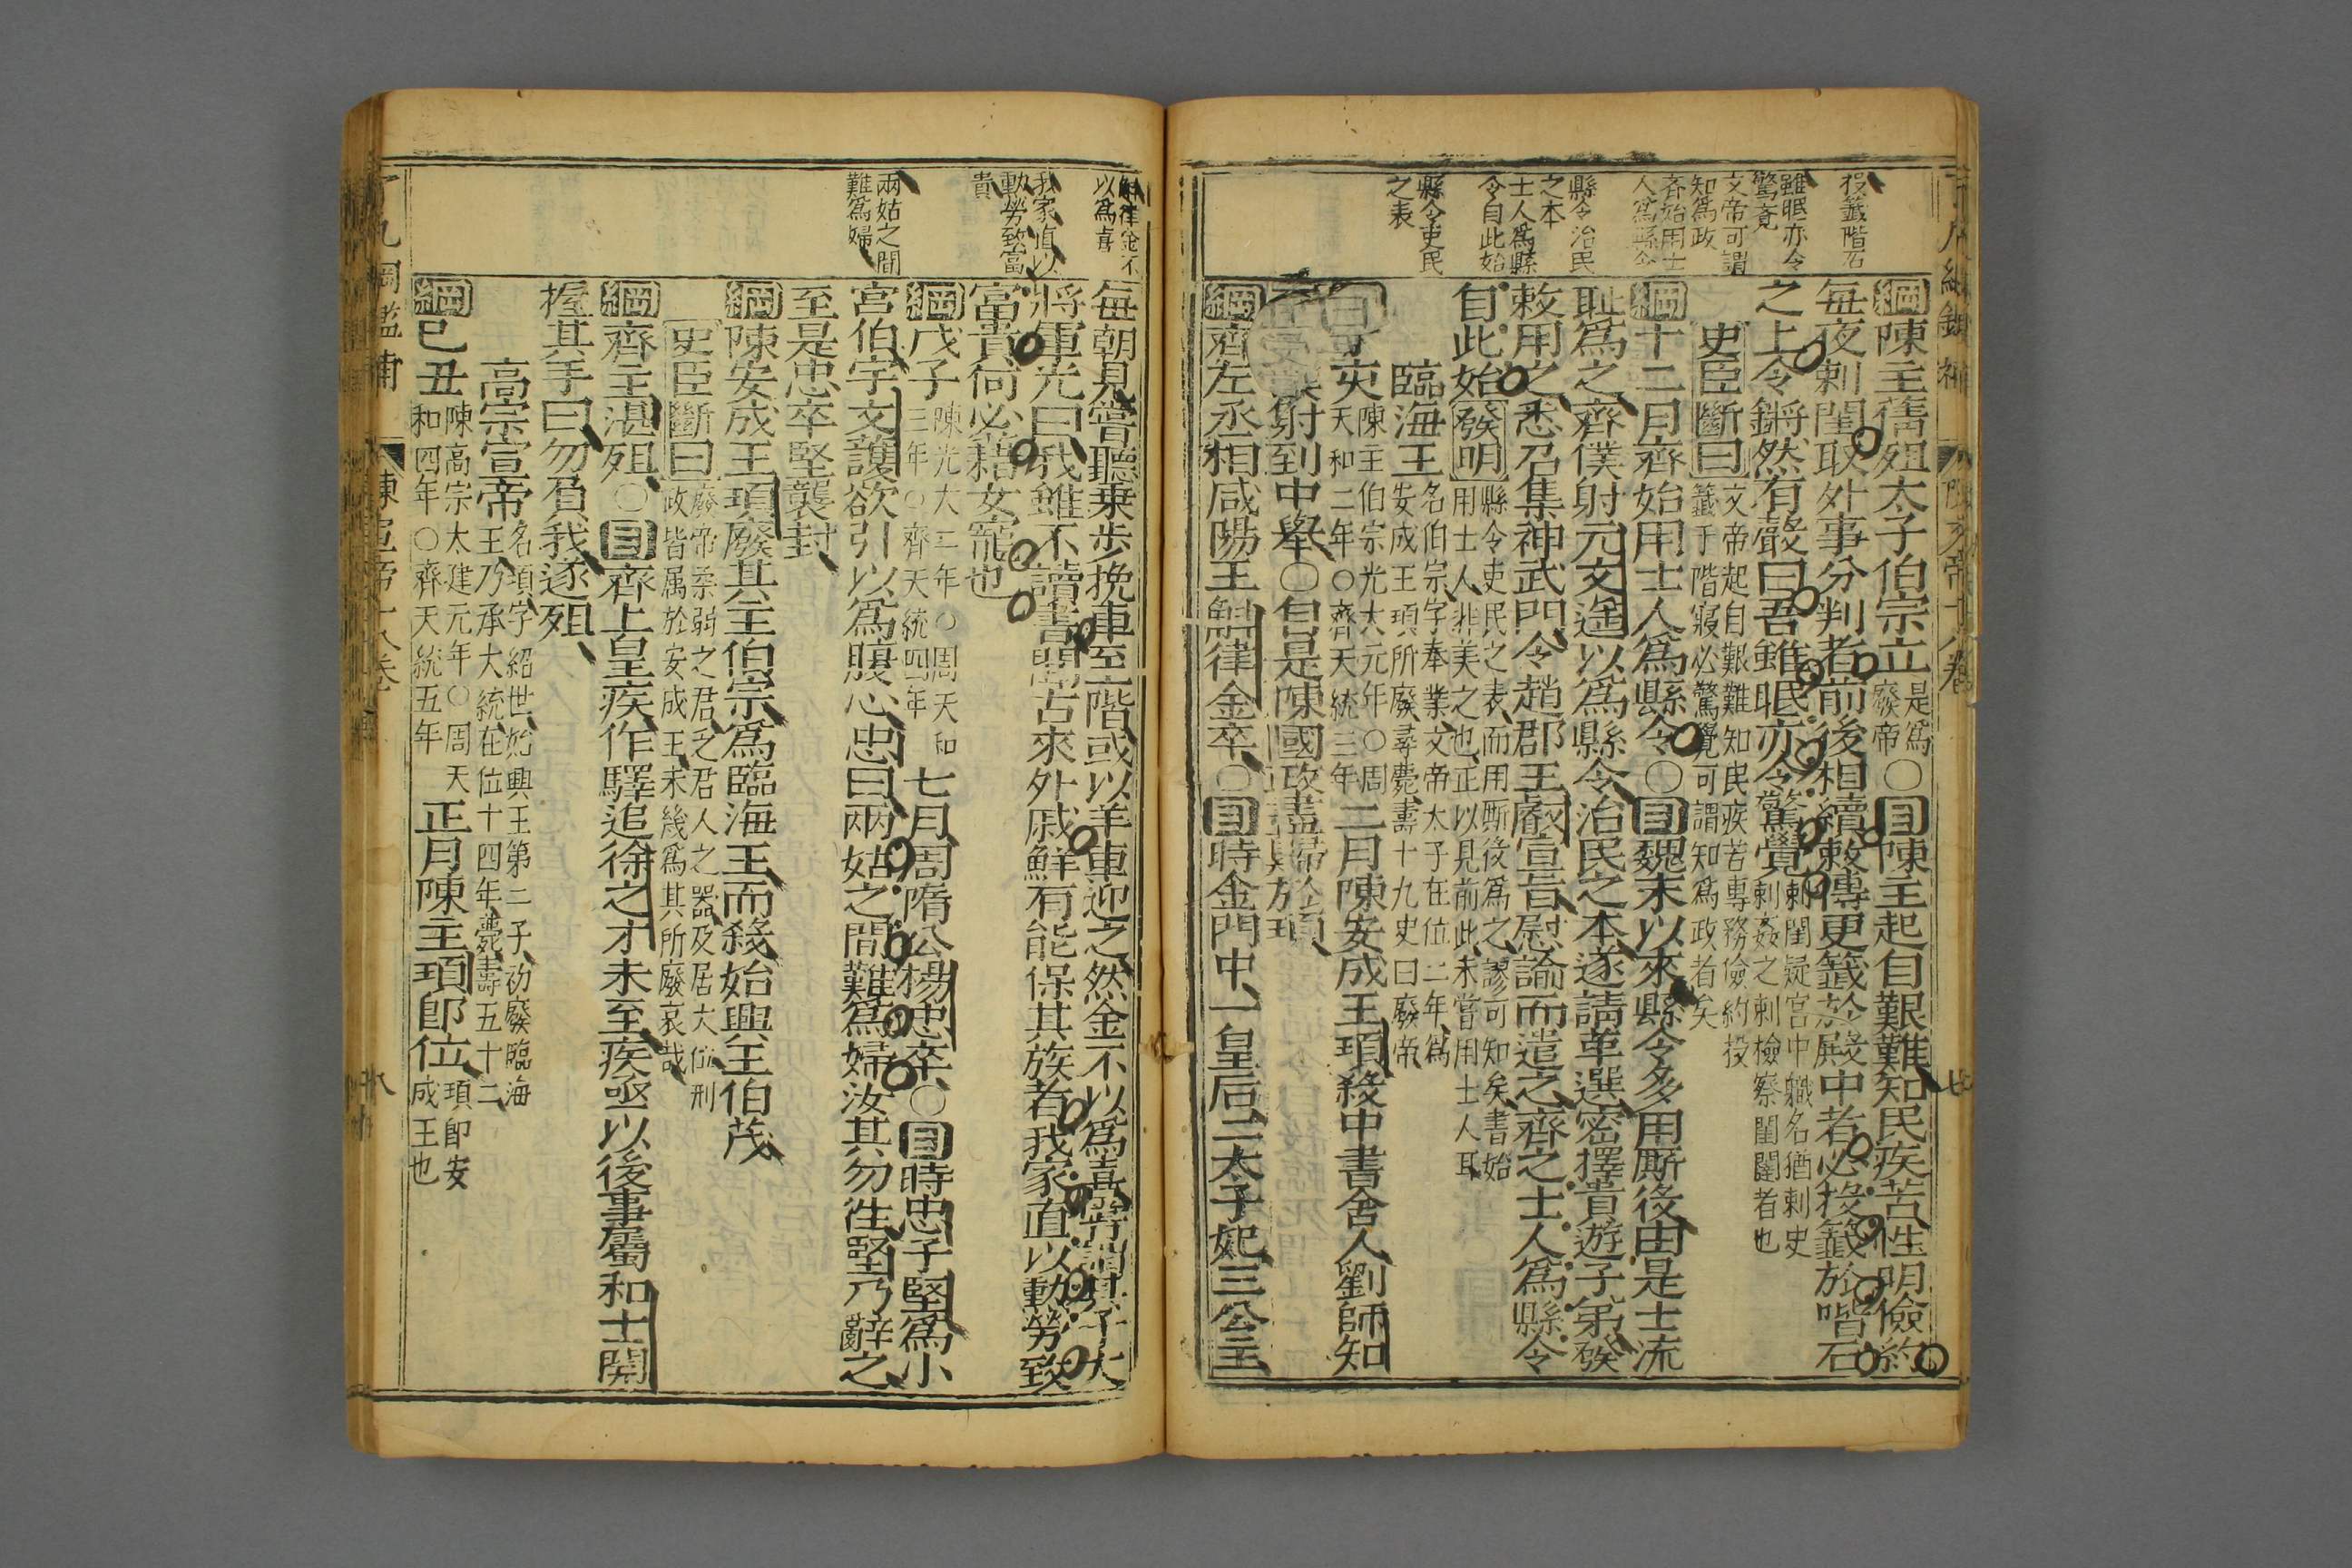 投籤階石
雖眠亦令
驚覺
文帝可謂
知爲政
齊始用士
人爲縣令
縣令治民
之本
士人爲縣
令自此始
縣令吏民
之表
綱陳主蒨殂太子伯宗立是爲廢帝○目陳主起自艱難知民疾苦性明儉約
每夜刺閨取外事分判者前後相續敕傳更籤於殿中者必投籤於階石
之上令鏘然有聲曰吾雖眠亦令驚覺刺閨疑宮中職名猶刺史刺姦之刺檢察閨闥者也
史臣斷曰文帝起自艱難知民疾苦專務儉約投籤于階寢必驚覺可謂知爲政者矣
綱十二月齊始用士人爲縣令○目魏末以來縣令多用厮役由是士流
耻爲之齊僕射元文遥以爲縣令治民之本遂請革選密擇貴遊子弟發
敕用之悉召集神武門令趙郡王叡宣旨慰諭而遣之齊之士人爲縣令
自此始發明縣令吏民之表而用厮役爲之謬可知矣書始用士人非美之也正以見前此未嘗用士人耳
臨海王名伯宗字奉業文帝太子在位二年爲安成王頊所廢尋薨壽十九史曰廢帝
丁亥陳主伯宗光大元年○周天和二年○齊天統三年二月陳安成王頊殺中書舍人劉師知
射到中舉○自是陳國政盡歸於頊
綱齊左丞相咸陽王斛律金卒○目時金門中一皇后二太子妃三公主
斛律金不
以爲喜
我家直以
勳勞致富
貴
兩姑之間
難爲婦
每朝見嘗聽乗步挽車至階或以羊車迎之然金不以爲喜嘗謂其子大
將軍光曰我雖不讀書聞古來外戚鮮有能保其族者我家直以勳勞致
富貴何必藉女寵也
綱戊子陳光大二年○周天和三年○齊天統四年七月周隋公楊忠卒○目時忠子堅爲小
宮伯宇文護欲引以爲腹心忠曰兩姑之間難爲婦汝其勿往堅乃辭之
至是忠卒堅襲封
綱陳安成王頊廢其主伯宗爲臨海王而殺始興王伯茂
史臣斷曰廢帝柔弱之君乏君人之器及居大位刑政皆属於安成王未幾爲其所廢哀哉
綱齊主湛殂○目齊上皇疾作驛追徐之才未至疾亟以後事屬和士開
握其手曰勿負我遂殂
高宗宣帝名頊字紹世始興王第二子初廢臨海王乃承大統在位十四年薨壽五十二
綱己丑陳高宗太建元年○周天和四年○齊天統五年正月陳主頊即位頊即安成王也